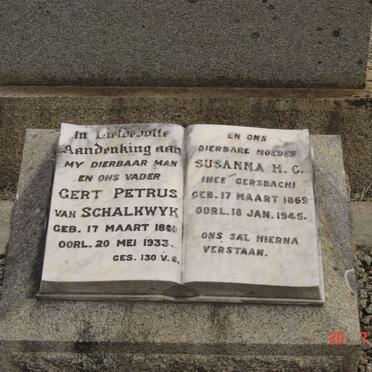 In Liefdevolle
Aandenking aan
MY DIERBAAR MAN
EN ONS VADER
GERT PETRUS
VAN SCHALKWYK
GEB. 17 MAART
OORL. 20 MEI 1933.
GES. 130 V. 6.
EN ONS
DIERBARE MOEDER
SUSANNA H. C.
(NEE GERSBACH)
GEB. 17 MAART 1869
OORL. 18 JAN. 1945.
ONS SAL HIERNA
VERSTAAN.